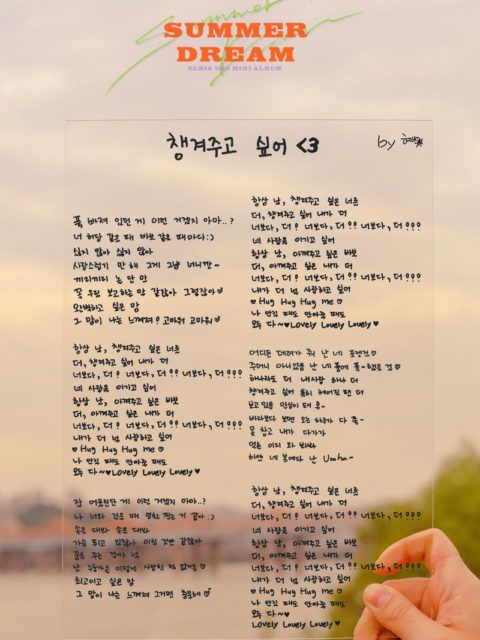 SUMMER
DREAM
ELRIS 3RD MINI ALBUM
챙겨주고 싶어 <3
by 혜성
푹 빠져 있단 게 이런 거겠지 아마..?
너 허당 같은 때 바보 같은 때마다:)
싫지 않아 싫지 않아
사랑스럽기만 해 그게 그냥 너니깐~
끼리끼리 논단 말
꼭 우릴 보고하는 말 같잖아 그렇잖아
완벽하고 싶은 맘
그 맘이 나는 느껴져? 고마워 고마워
항상 난, 챙겨주고 싶은 너른
더, 챙겨주고 싶어 내가 더
너보다, 더? 너보다, 더?? 너보다, 더???
네 사랑을 이기고 싶어
항상 난, 아껴주고 싶은 바보
더, 아껴주고 싶은 내가 더
너보다, 더? 너보다, 더?? 너보다, 더???
내가 더 널 사랑하고 싶어
♡ Hug Hug Hug Me ♡
나 안긴 때도 안아줄 때도
모두 다~♥Lovely Lovely Lovely♥
참 어울린단 게 이런 거겠지 아마..?
나 너와 같은 때 말한 적는 거 같아:)
손은 대봐 손은 대봐
가슴 뛰고 있잖아 이런 것만 같잖아
꿈을 꾸는 건가 넘
난 누군가를 이렇게 사랑한 적 없거든♡
최고이고 싶은 맘
그 맘이 나는 느껴져 그거면 충분해♡
항상 난, 챙겨주고 싶은 너른
더, 챙겨주고 싶어 내가 더
너보다, 더? 너보다, 더?? 너보다, 더???
네 사랑을 이기고 싶어
항상 난, 아껴주고 싶은 바보
더, 아껴주고 싶은 내가 더
너보다, 더? 너보다, 더?? 너보다, 더???
내가 더 널 사랑하고 싶어
♡ Hug Hug Hug Me ♡
나 안긴 때도 안아줄 때도
모두 다~♥Lovely Lovely Lovely♥
어디든 데려가 줘 난 네 포켓걸♡
주머니 아니었음 난 네 품에 품
하나라도 더 내사랑 하나 더
챙겨주고 싶어 특히 헤어질 땐 더
보고 있음 안심이 돼 휴~
바라보다 보면 모든 하루가 다 훅~
못 참고 내가 다가가
얼른 이리 와 봐봐
하얀 네 볼에다 난 Umha~
항상 난, 챙겨주고 싶은 너른
더, 챙겨주고 싶어 내가 더
너보다, 더? 너보다, 더?? 너보다, 더???
네 사랑을 이기고 싶어
항상 난, 아껴주고 싶은 바보
더, 아껴주고 싶은 내가 더
너보다, 더? 너보다, 더?? 너보다, 더???
내가 더 널 사랑하고 싶어
♡ Hug Hug Hug Me ♡
나 안긴 때도 안아줄 때도
모두 다~♥
Lovely Lovely Lovely♡